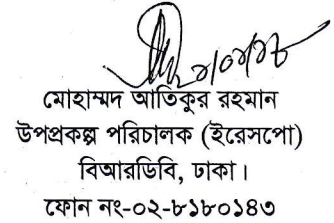 মোহাম্মদ আতিকুর রহমান
উপপ্রকল্প পরিচালক (ইরেসপো)
বিআরডিবি, ঢাকা।
ফোন নং-০২-৮১৮০১৪৩